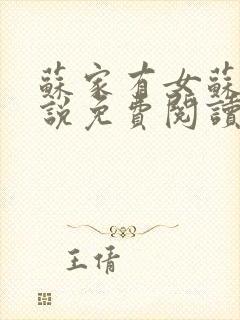 蘇家有女蘇
說免費閱讀
王倩